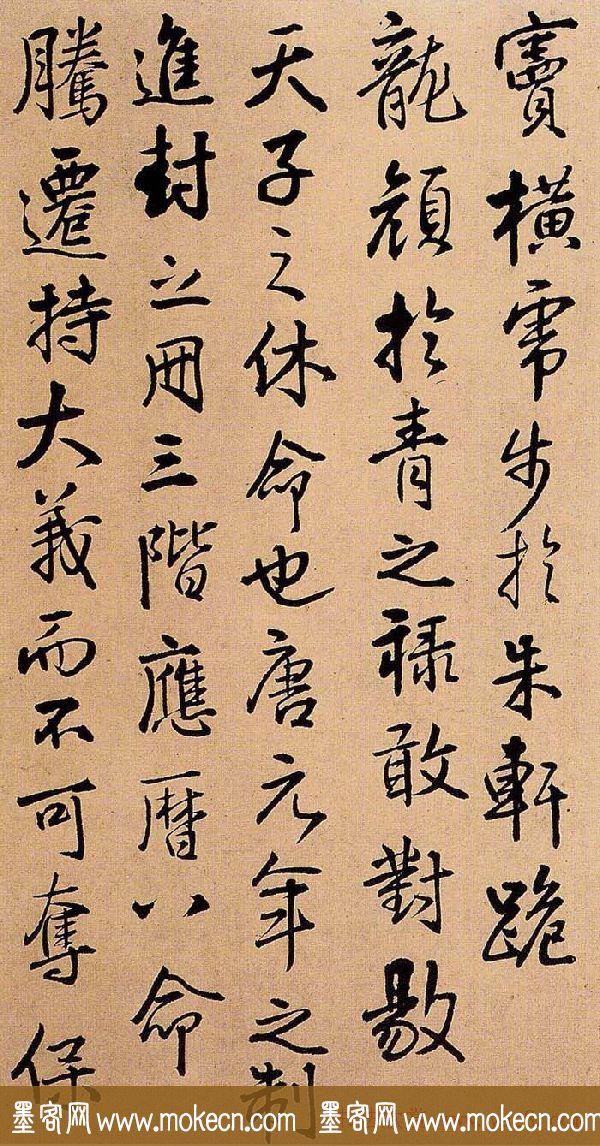 賓橫霈步於朱軒跪
龍顏於青之祿敢對敭
天子之休命也唐元年之制
進封之冊三階應曆八命
騰遷持大義而不可奪保
墨客网 www.mokecn.com 墨客网 www.mokecn.com 墨客网 www.mokecn.com